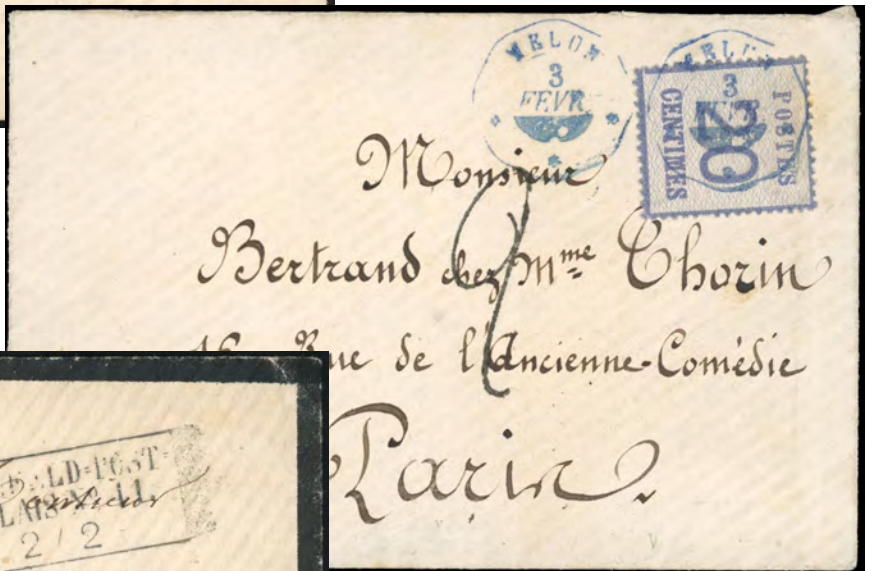 MELUN
3
FEVR.
MELUN
3
FEVR.
POSTES
20
CENTIMES
2
Monsieur
Bertrand chez Mme Thorin
16 Rue de l'Ancienne-Comédie
Paris
FELD-POST-
RELAIS No 11
2/2